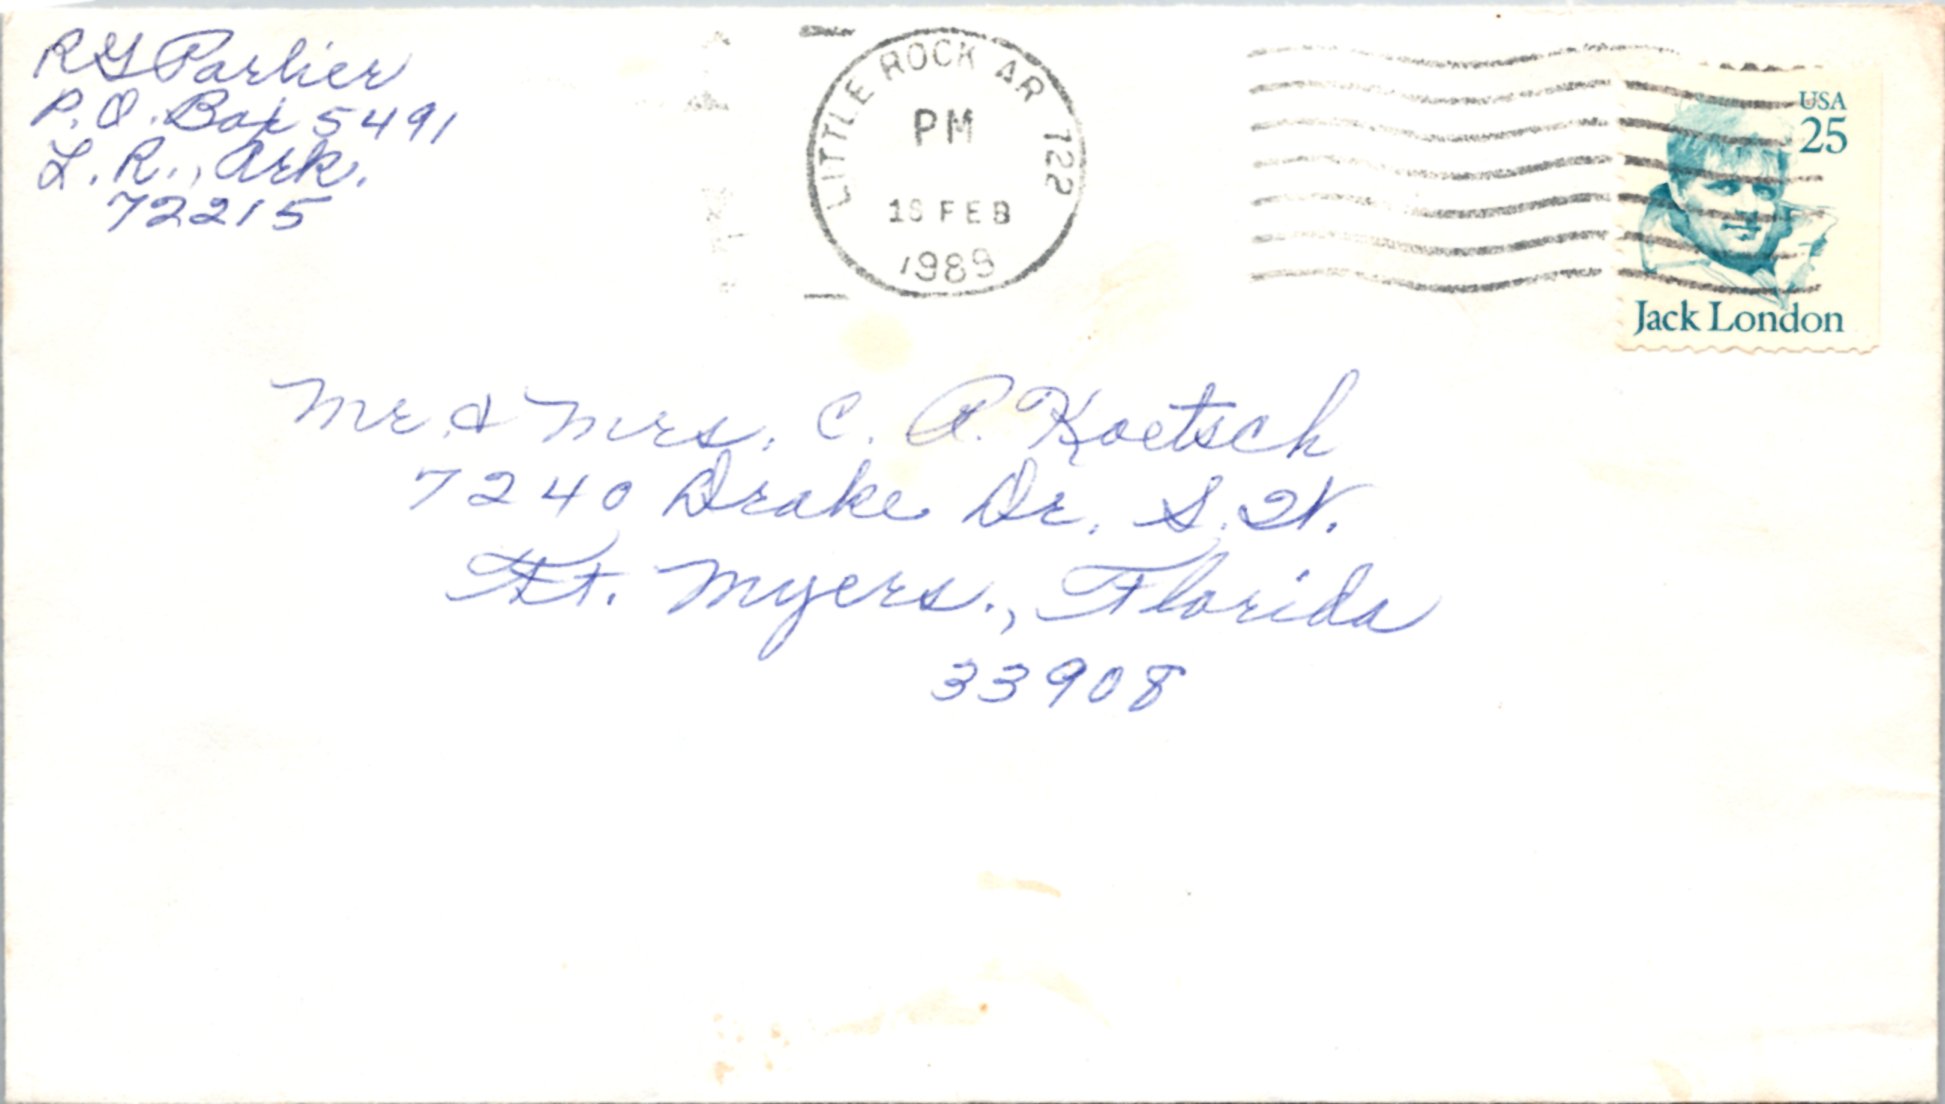 RG Parlier
P.O. Box 5491
L.R., Ark.
72215
LITTLE ROCK AR 722
PM
FEB
1989
USA
25
Jack London
Mr. & Mrs. C. A. Koetsch
7240 Drake Dr. S.W.
Ft. Myers., Florida
33908